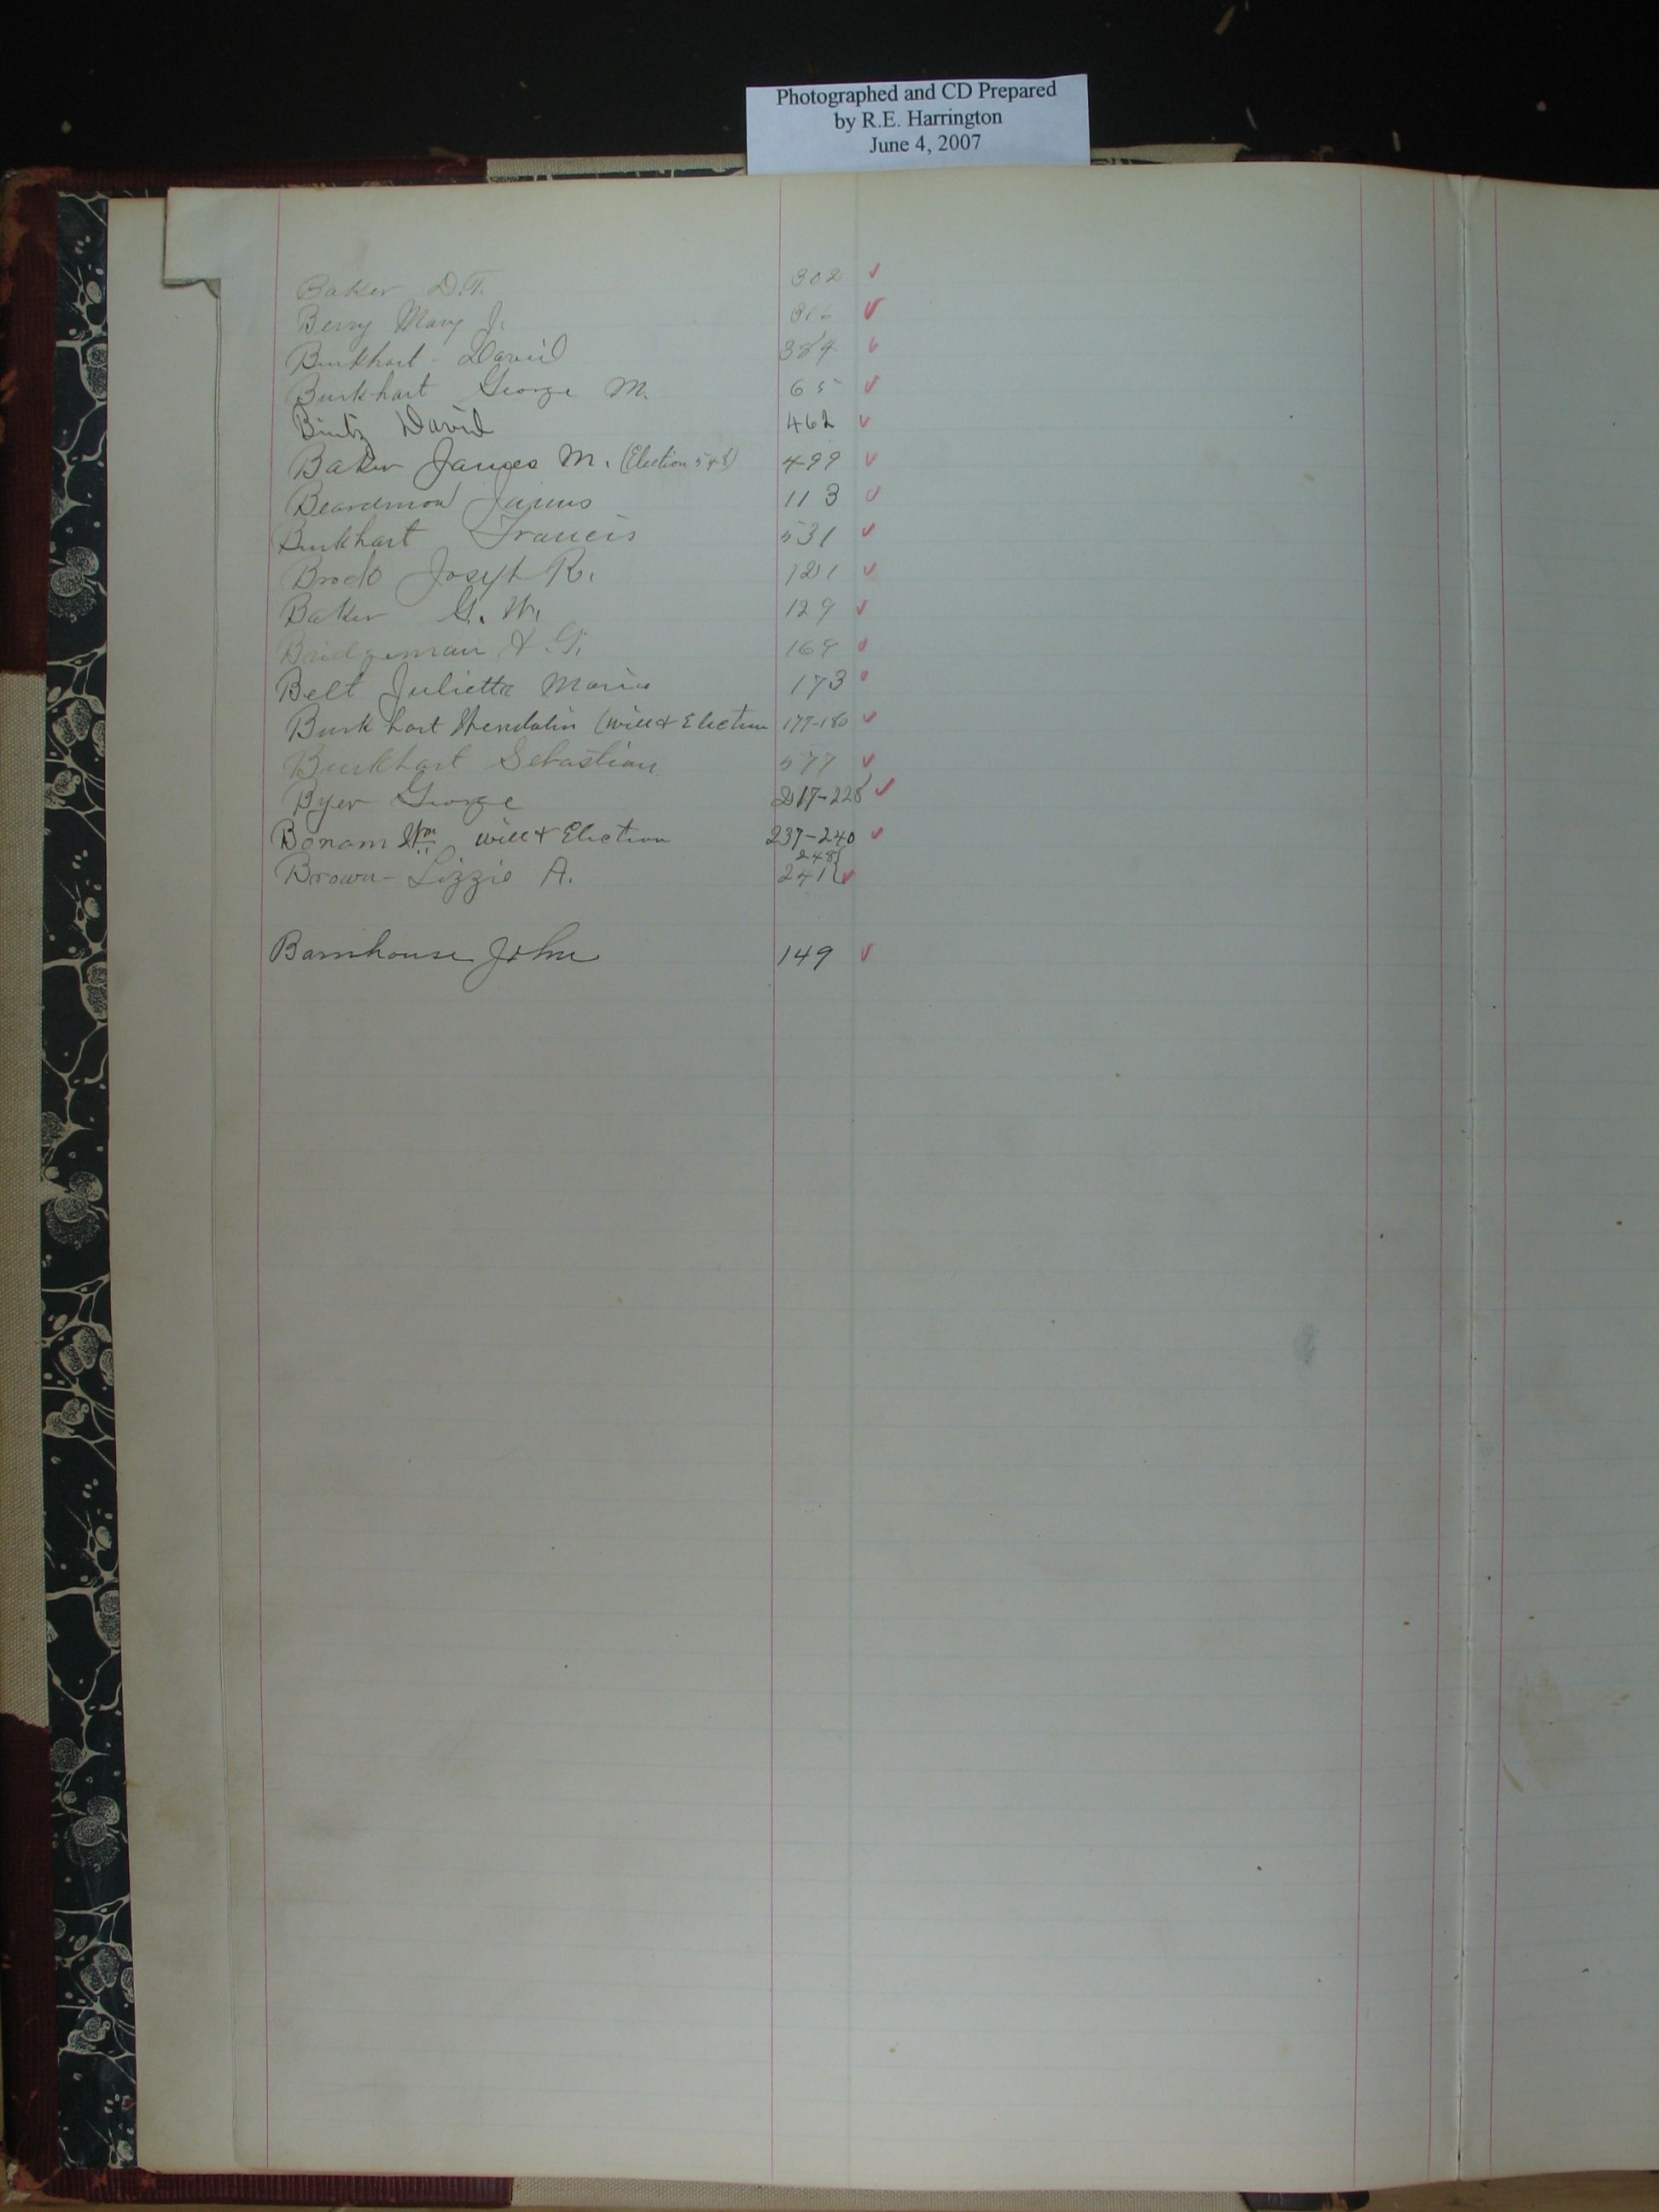 Photographed and CD Prepared
by R.E. Harrington
June 4, 2007
Baker D.T. 302
Berry Mary J.
Burkhart - David 384
Burkhart George M. 65
Bintz David 462
Baker James M. (Election 548) 499
Beardmore James 113
Burkhart Francis 531
Brock Joseph R. 121
Baker G. W. 129
Bridgeman 169
Belt Julietta Maria 173
Burkhart Wendalin (will & Election 177-180
Burkhart Sebastian 577
Byer George 217-228
Bonam Wm will & Election 237-240
248
Brown - Lizzie A. 241
Barnhouse John 149